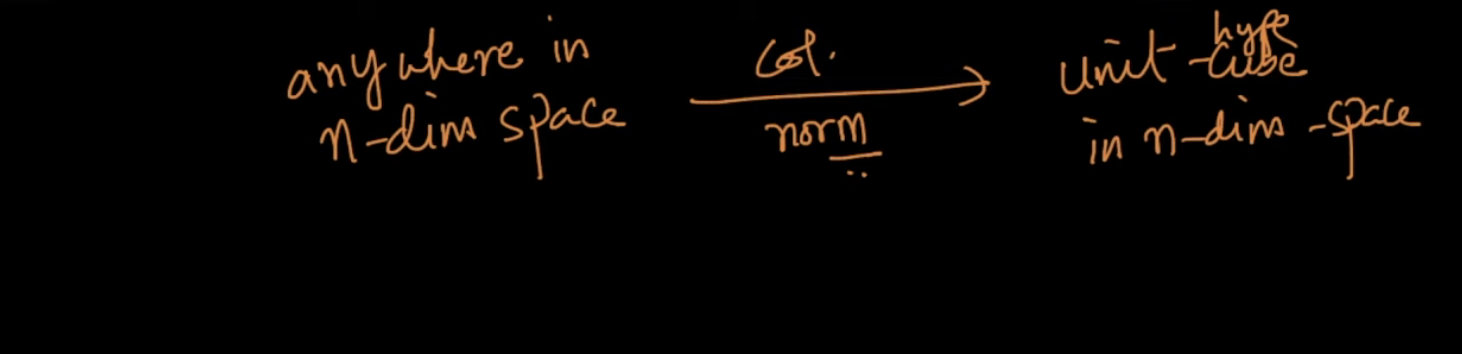 anywhere in
n-dim space
col.
norm
unit-hype
cube
in n-dim-space